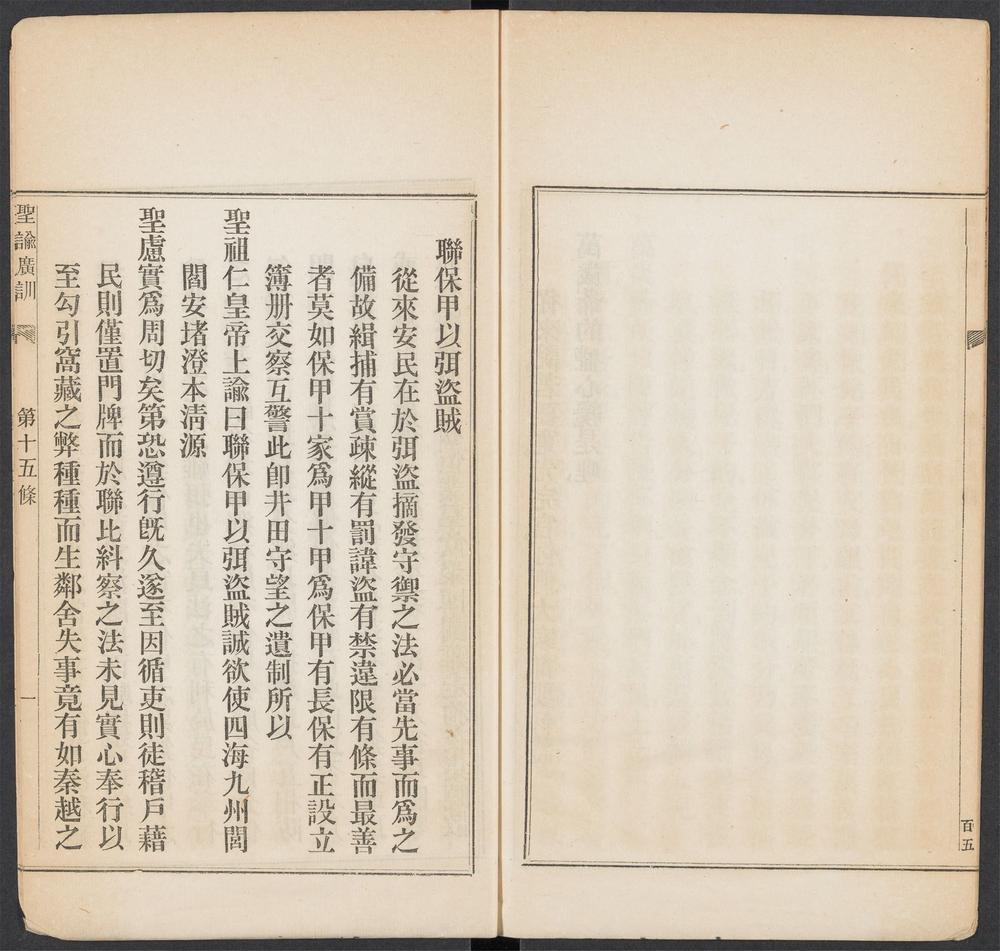 百五
聯保甲以弭盜賊
從來安民在於弭盜摘發守禦之法必當先事而爲之
備故緝捕有賞疎縱有罰諱盜有禁違限有條而最善
者莫如保甲十家爲甲十甲爲保甲有長保有正設立
簿册交察互警此卽井田守望之遺制所以
聖祖仁皇帝上諭曰聯保甲以弭盜賊誠欲使四海九州閭
閻安堵澄本淸源
聖慮實爲周切矣第恐遵行旣久遂至因循吏則徒稽戶藉
民則僅置門牌而於聯比糾察之法未見實心奉行以
至勾引窩藏之弊種種而生鄰舍失事竟有如秦越之
聖諭廣訓 第十五條 一